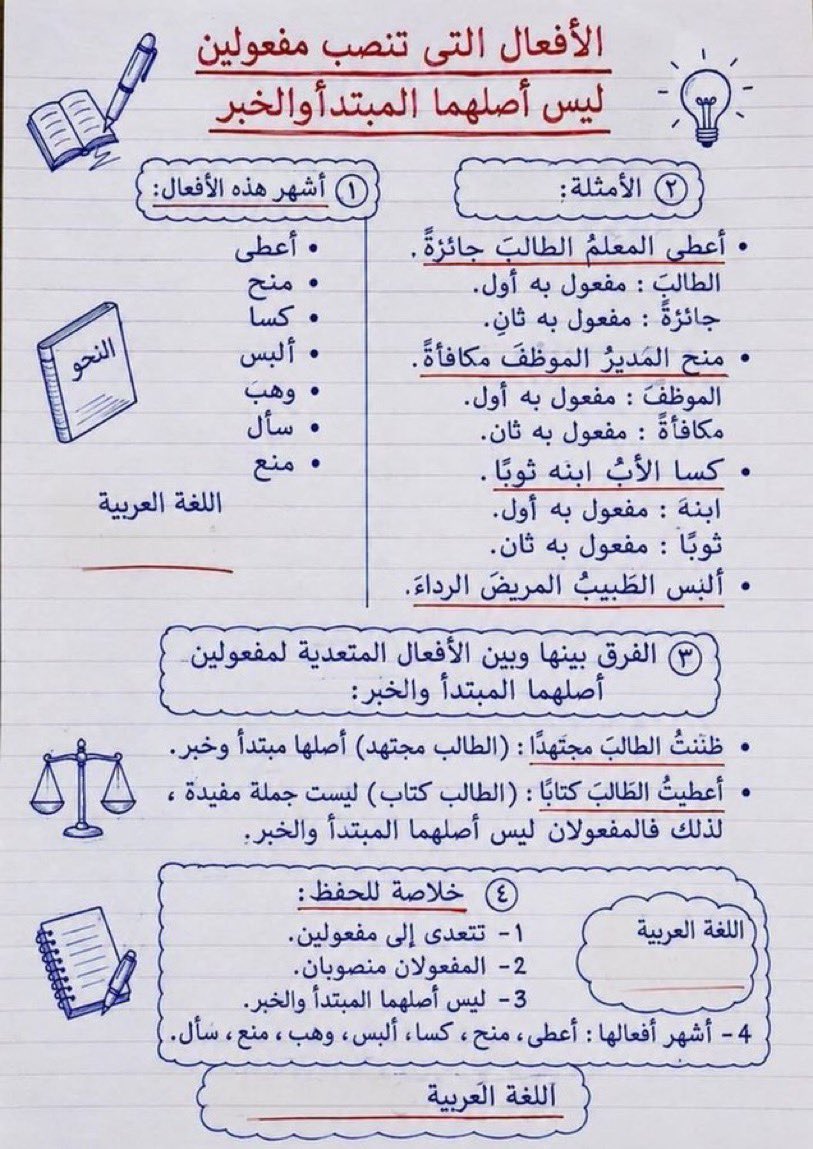 الأفعال التى تنصب مفعولين
ليس أصلهما المبتدأ والخبر
١ أشهر هذه الأفعال:
• أعطى
• منح
• كسا
• ألبس
• وهبَ
• سأل
• منع
النحو
اللغة العربية
٢ الأمثلة:
• أعطى المعلمُ الطالبَ جائزةً.
الطالبَ : مفعول به أول.
جائزةً : مفعول به ثانِ.
• منح المَديرُ الموظفَ مكافأةً.
الموظفَ : مفعول به أول.
مكافأةً : مفعول به ثان.
• كسا الأبُ ابنه ثوبًا.
ابنهَ : مفعول به أول.
ثوبًا : مفعول به ثان.
• ألبس الطَبيبُ المريضَ الرداءَ.
٣ الفرق بينها وبين الأفعال المتعدية لمفعولين
أصلهما المبتدأ والخبر:
• ظننتُ الطالبَ مجتَهدًا : (الطالب مجتهد) أصلها مبتدأ وخبر.
• أعطيتُ الطَالبَ كتابًا : (الطالب كتاب) ليست جملة مفيدة ،
لذلك فالمفعولان ليس أصلهما المبتدأ والخبر.
٤ خلاصة للحفظ:
1- تتعدى إلى مفعولين.
2- المفعولان منصوبان.
3- ليس أصلهما المبتدأ والخبر.
4- أشهر أفعالها : أعطى، منح ، كسا، ألبس، وهب ، منع ، سأل.
اللغة العربية
اللغة العَربية